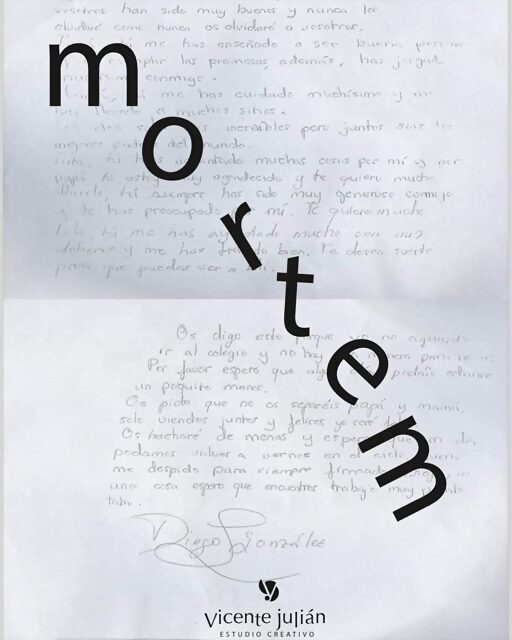 vosotros han sido muy buenos y nunca los
olvidaré como nunca os olvidaré a vosotros.
tú me has enseñado a ser buena persona
cumplir las promesas, además, has jugado
muchísimo conmigo.
tú me has cuidado muchísimo y me
has llevado a muchos sitios.
Los dos sois increíbles pero juntos sois los
mejores padres del mundo.
tú has aguantado muchas cosas por mí y por
papá, te estoy muy agradecido y te quiero mucho.
Abuelo, tú siempre has sido muy generoso conmigo
y te has preocupado por mí. Te quiero mucho.
Lolo tú me has ayudado mucho con mis
deberes y me has tratado bien. Te deseo suerte
para que puedas ver a
Os digo esto porque yo no aguanto
ir al colegio y no hay otra manera para no ir.
Por favor espero que algún podáis odiarme
un poquito menos.
Os pido que no os separéis papá y mamá,
solo viéndoos juntos y felices yo seré feliz.
Os hecharé de menos y espero que un día
podamos volver a vernos en el cielo. Bueno,
me despido para siempre. firmado Diego,
una cosa espero que encuentres trabajo muy pronto
Diego González
mortem
Vicente Julián
ESTUDIO CREATIVO